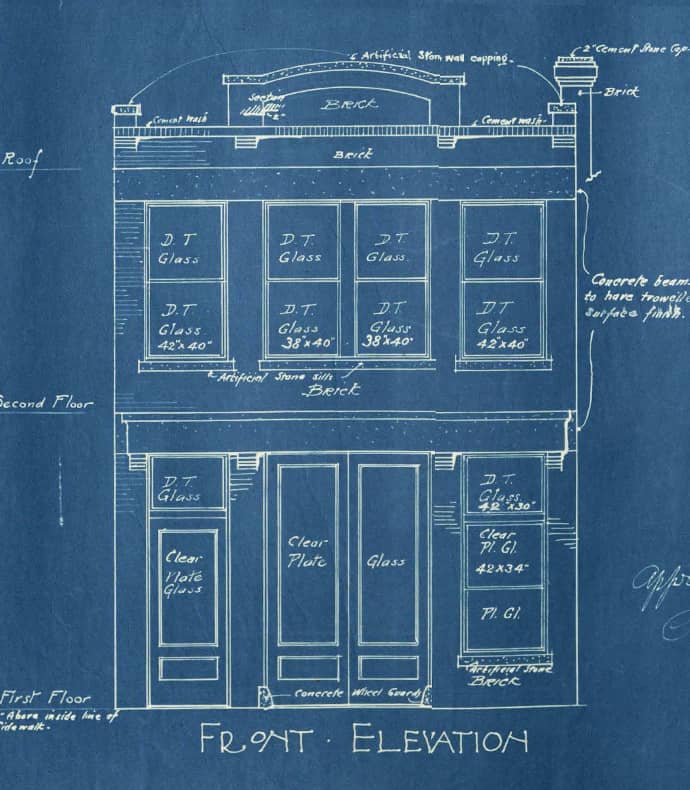 Artificial Stone wall copping.
2" Cement Stone Cap.
Brick
Section
Brick
Cement Wash
Cement wash.
Roof
Brick
D. T
Glass
D. T.
Glass
D. T.
Glass.
D. T.
Glass
Concrete beam
to have trowele
Surface finish.
D. T.
Glass.
42"x40"
D. T.
Glass.
38"x40"
D. T.
Glass
38"x40"
D T
Glass
42"x40"
Artificial Stone sills
Brick
Second Floor
D. T.
Glass
D. T.
Glass.
42"x30"
Clear
Plate
Glass
Clear
Plate
Glass
Clear
Pl. Gl.
42x34"
Pl. Gl.
Artificial Stone
Brick
First Floor
Above inside line of
Sidewalk.
Concrete Wheel Guards
FRONT · ELEVATION